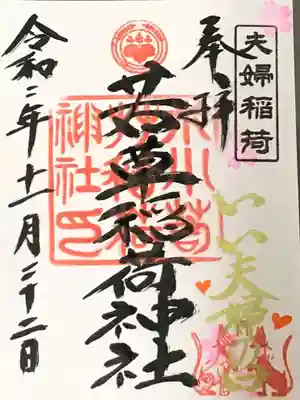 夫婦稲荷
奉拝
いい夫婦の日
若草稲荷神社
令和二年十一月二十二日